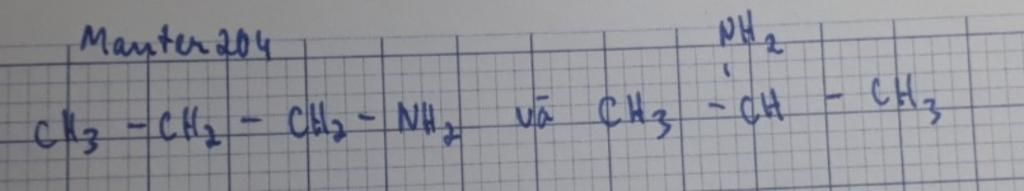 Manter204
NH2
CH3 - CH2 - CH2 - NH2 vã CH3 - CH - CH3